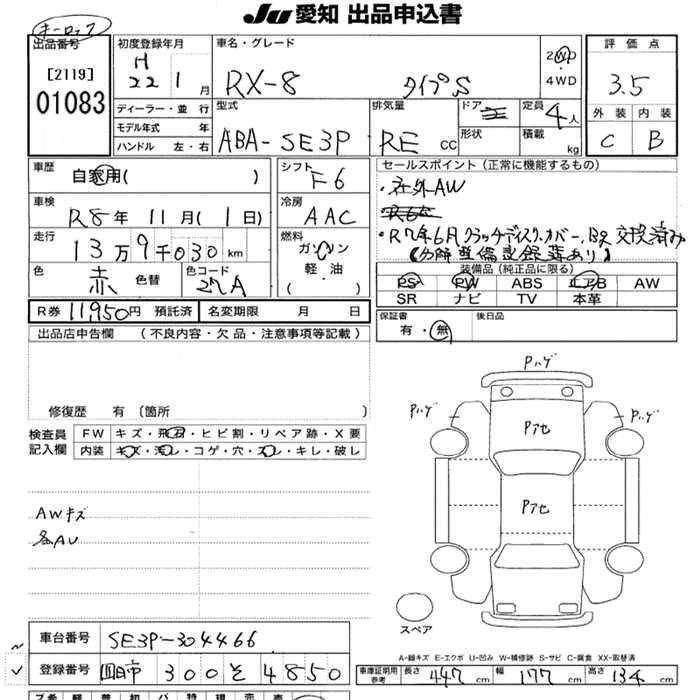 JU 愛知 出品申込書
キーロック
出品番号
[2119]
01083
初度登録年月
H 22 1 月
ディーラー・並 行
モデル年式 年
ハンドル 左・右
車名・グレード
RX-8 タイプS
2WD
4WD
型式
ABA-SE3P
排気量
RE CC
ドア
形状
定員
4人
積載
kg
評 価 点
3.5
外 装 内 装
C B
車歴
自家用( )
車検
R8 年 11 月( 1 日)
走行
13 万 9 千 030 km
色
赤 色替
色コード
27A
シフト
F6
冷房
AAC
燃料
ガソリン
軽・油
( )
セールスポイント(正常に機能するもの)
・社外AW
・R7年6月クラッチディスク,カバー,B2 交換済み
(分解整備記録簿あり)
装備品(純正品に限る)
PS PW ABS エアB AW
SR ナビ TV 本革
R券 11,950円 預託済
名変期限 月 日
保証書
有・無
後日品
出品店申告欄 (不良内容・欠品・注意事項等記載)
修復歴 有 〔箇所 〕
検査員
記入欄
FW キズ・飛石・ヒビ割・リペア跡・X要
内装 キズ・汚レ・コゲ・穴・スレ・キレ・破レ
AWキズ
各AU
Pハゲ
Pハゲ
Pハゲ
Pアセ
Pアセ
スペア
A-線キズ E-エクボ U-凹み W-補修跡 S-サビ C-腐食 XX-取替済
車台番号
SE3P-304466
登録番号
四日市 300 そ 4850
車庫証明用
参考
長さ 447 cm
幅 177 cm
高さ 134 cm